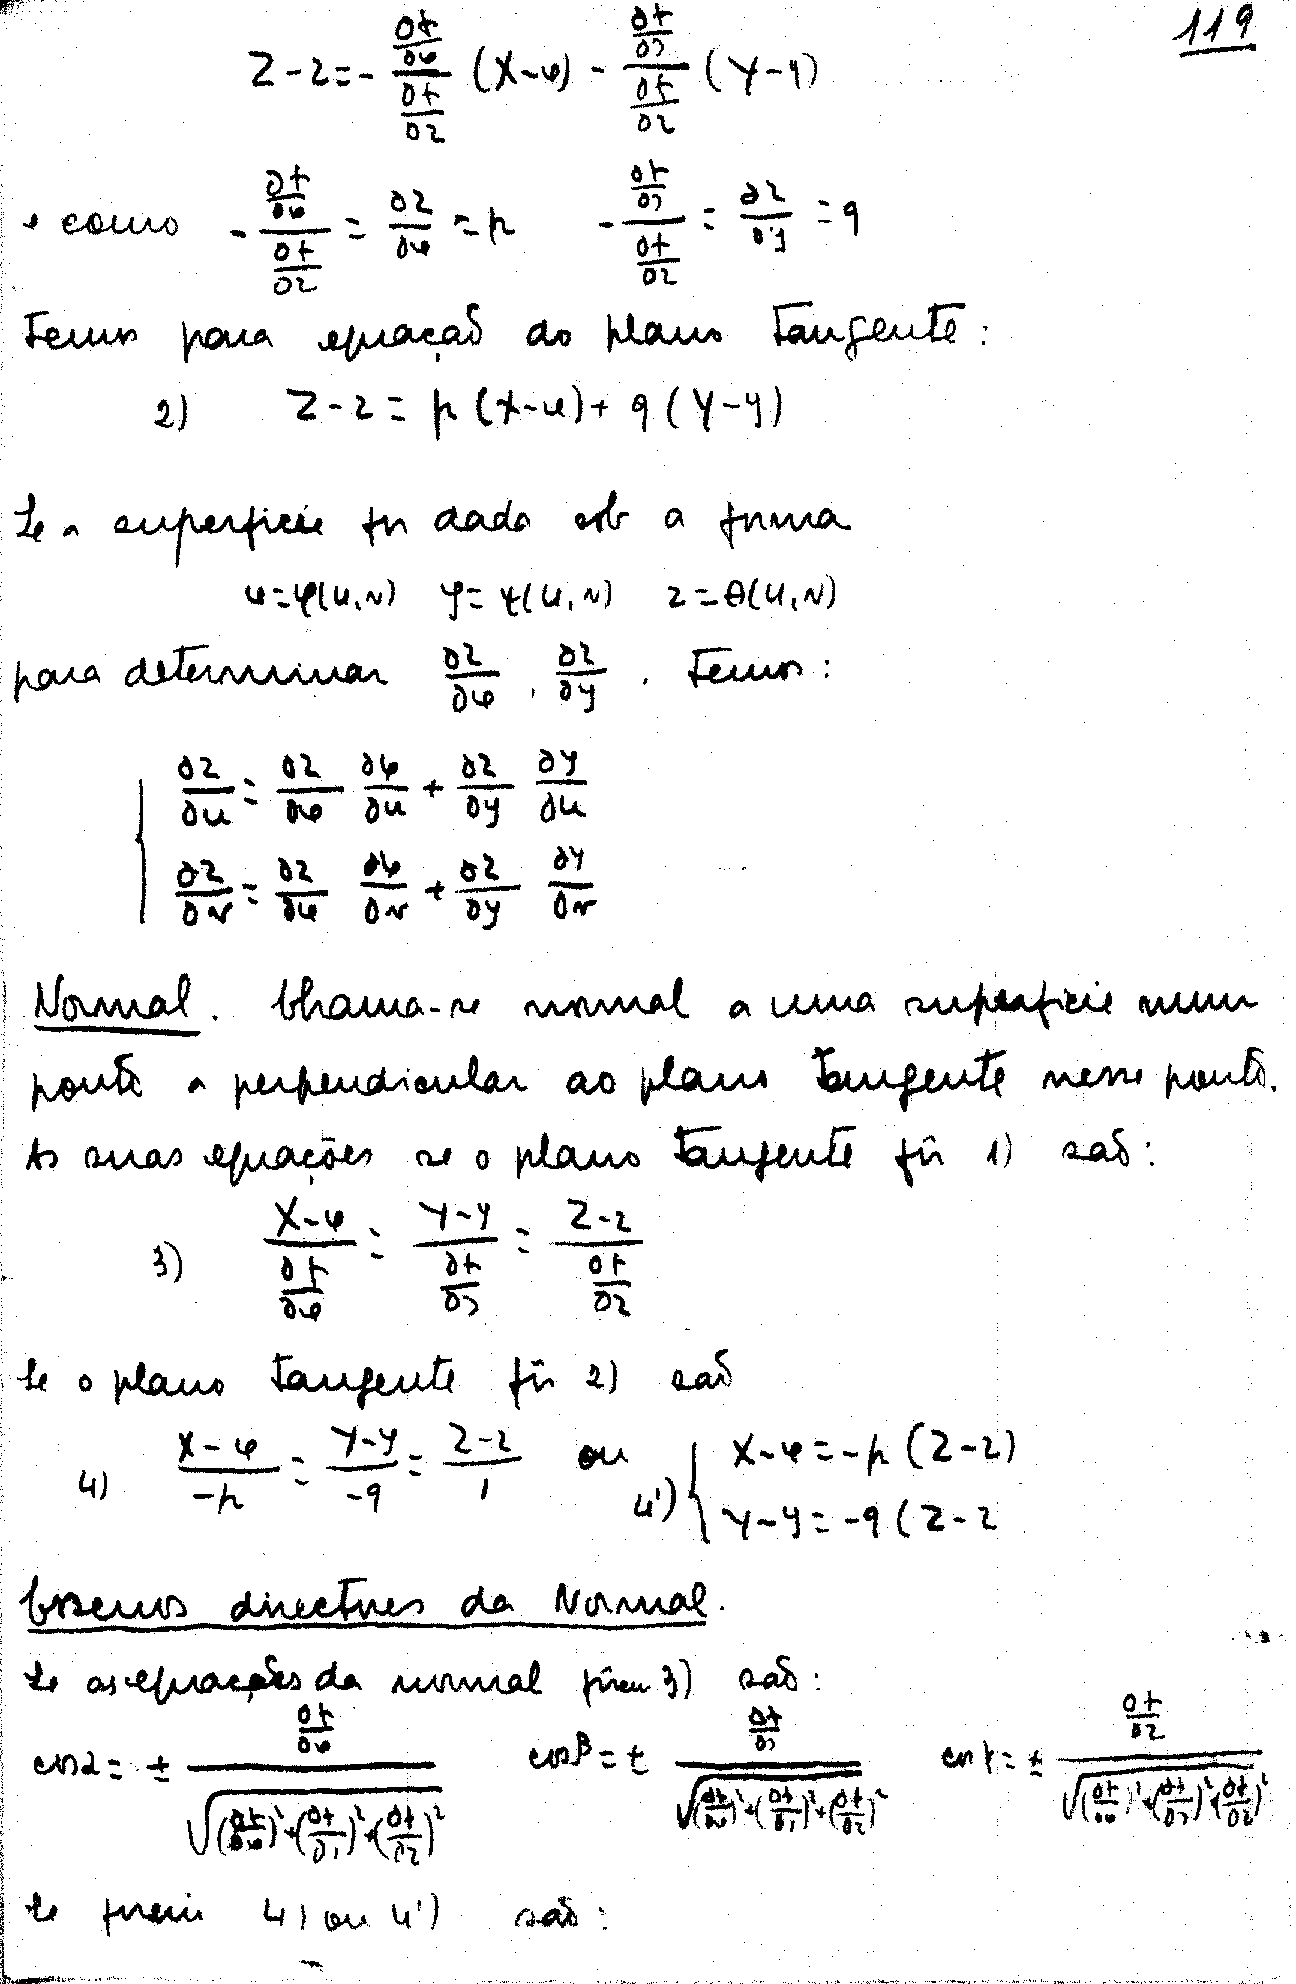 119
Z - z = - \frac{\frac{∂f}{∂x}}{\frac{∂f}{∂z}} (X-x) - \frac{\frac{∂f}{∂y}}{\frac{∂f}{∂z}} (Y-y)
e como - \frac{\frac{∂f}{∂x}}{\frac{∂f}{∂z}} = \frac{∂z}{∂x} = p - \frac{\frac{∂f}{∂y}}{\frac{∂f}{∂z}} = \frac{∂z}{∂y} = q
Temos para equação do plano tangente:
2) Z-z = p (X-x) + q (Y-y)
Se a superficie fôr dada sob a forma
x=φ(u,v) y=ψ(u,v) z=θ(u,v)
para determinar \frac{∂z}{∂x}, \frac{∂z}{∂y}. Temos:
\frac{∂z}{∂u} = \frac{∂z}{∂x} \frac{∂x}{∂u} + \frac{∂z}{∂y} \frac{∂y}{∂u}
\frac{∂z}{∂v} = \frac{∂z}{∂x} \frac{∂x}{∂v} + \frac{∂z}{∂y} \frac{∂y}{∂v}
Normal. Chama-se normal a uma superficie num
ponto a perpendicular ao plano tangente nesse ponto.
As suas equações se o plano tangente fôr 1) são:
3) \frac{X-x}{\frac{∂f}{∂x}} = \frac{Y-y}{\frac{∂f}{∂y}} = \frac{Z-z}{\frac{∂f}{∂z}}
Se o plano tangente fôr 2) são
4) \frac{X-x}{-p} = \frac{Y-y}{-q} = \frac{Z-z}{1} ou 4') { X-x = -p (Z-z)
Y-y = -q (Z-z
Cosenos directores da Normal.
Se as equações da normal fôrem 3) são:
cos α = ± \frac{\frac{∂f}{∂x}}{\sqrt{(\frac{∂f}{∂x})^2+(\frac{∂f}{∂y})^2+(\frac{∂f}{∂z})^2}} cos β = ± \frac{\frac{∂f}{∂y}}{\sqrt{(\frac{∂f}{∂x})^2+(\frac{∂f}{∂y})^2+(\frac{∂f}{∂z})^2}} cos γ = ± \frac{\frac{∂f}{∂z}}{\sqrt{(\frac{∂f}{∂x})^2+(\frac{∂f}{∂y})^2+(\frac{∂f}{∂z})^2}}
Se forem 4) ou 4') são: